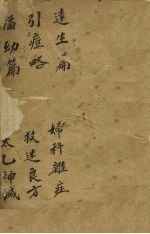 達生篇
引痘略
福幼篇
婦科雜症
救迷良方
太乙神減